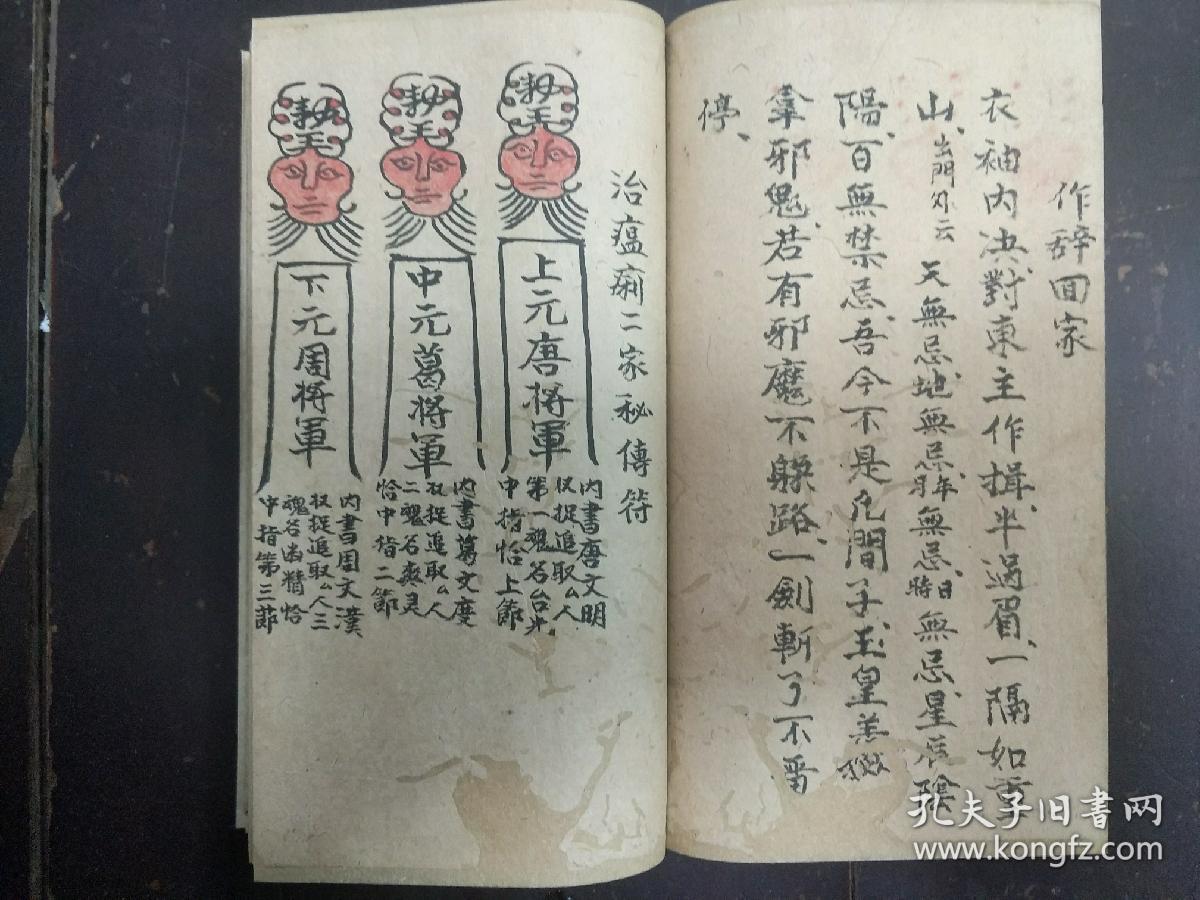 作辞回家
衣袖内决對東主作揖、半過眉、一隔如重
山、出門外云 天無忌、地無忌、年月無忌、日時無忌、星辰陰
陽、百無禁忌、吾今不是凡間子、玉皇差
拿邪鬼、若有邪魔不躲路、一劍斬了不畱
停、
治瘟痢二家秘傳符
敕王
上元唐將軍
内書唐文明
役捉追取厶人
第一魂名台光
中指恰上節
敕王
中元葛將軍
内書葛文度
役捉追取厶人
二魂名爽灵
恰中指二節
敕王
下元周將軍
内書周文漢
役捉追取厶人三
魂名幽精恰
中指第三節
孔夫子旧書网
www.kongfz.com